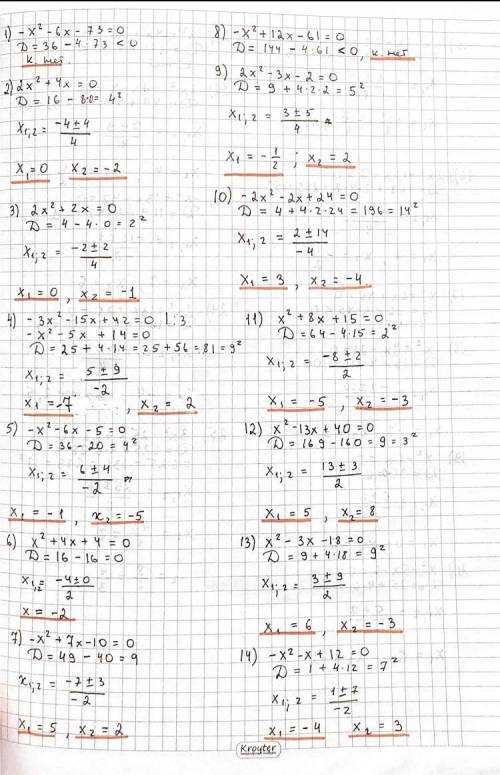 1) -x² - 6x - 73 = 0
D = 36 - 4·73 < 0
к. нет.
2) 2x² + 4x = 0
D = 16 - 8·0 = 4²
x₁,₂ = (-4 ± 4)/4
x₁ = 0 x₂ = -2
3) 2x² + 2x = 0
D = 4 - 4·0 = 2²
x₁;₂ = (-2 ± 2)/4
x₁ = 0, x₂ = -1
4) -3x² - 15x + 42 = 0 |:3
-x² - 5x + 14 = 0
D = 25 + 4·14 = 25 + 56 = 81 = 9²
x₁;₂ = (5 ± 9)/-2
x₁ = -7, x₂ = 2
5) -x² - 6x - 5 = 0
D = 36 - 20 = 4²
x₁;₂ = (6 ± 4)/-2
x₁ = -1, x₂ = -5
6) x² + 4x + 4 = 0
D = 16 - 16 = 0
x₁,₂ = (-4 ± 0)/2
x = -2
7) -x² + 7x - 10 = 0
D = 49 - 40 = 9
x₁;₂ = (-7 ± 3)/-2
x₁ = 5, x₂ = 2
8) -x² + 12x - 61 = 0
D = 144 - 4·61 < 0, к. нет
9) 2x² - 3x - 2 = 0
D = 9 + 4·2·2 = 5²
x₁;₂ = (3 ± 5)/4
x₁ = -1/2; x₂ = 2
10) -2x² - 2x + 24 = 0
D = 4 + 4·2·24 = 196 = 14²
x₁;₂ = (2 ± 14)/-4
x₁ = 3, x₂ = -4
11) x² + 8x + 15 = 0
D = 64 - 4·15 = 2²
x₁;₂ = (-8 ± 2)/2
x₁ = -5, x₂ = -3
12) x² - 13x + 40 = 0
D = 169 - 160 = 9 = 3²
x₁;₂ = (13 ± 3)/2
x₁ = 5, x₂ = 8
13) x² - 3x - 18 = 0
D = 9 + 4·18 = 9²
x₁;₂ = (3 ± 9)/2
x₁ = 6, x₂ = -3
14) -x² - x + 12 = 0
D = 1 + 4·12 = 7²
x₁;₂ = (1 ± 7)/-2
x₁ = -4 x₂ = 3
Kroyter